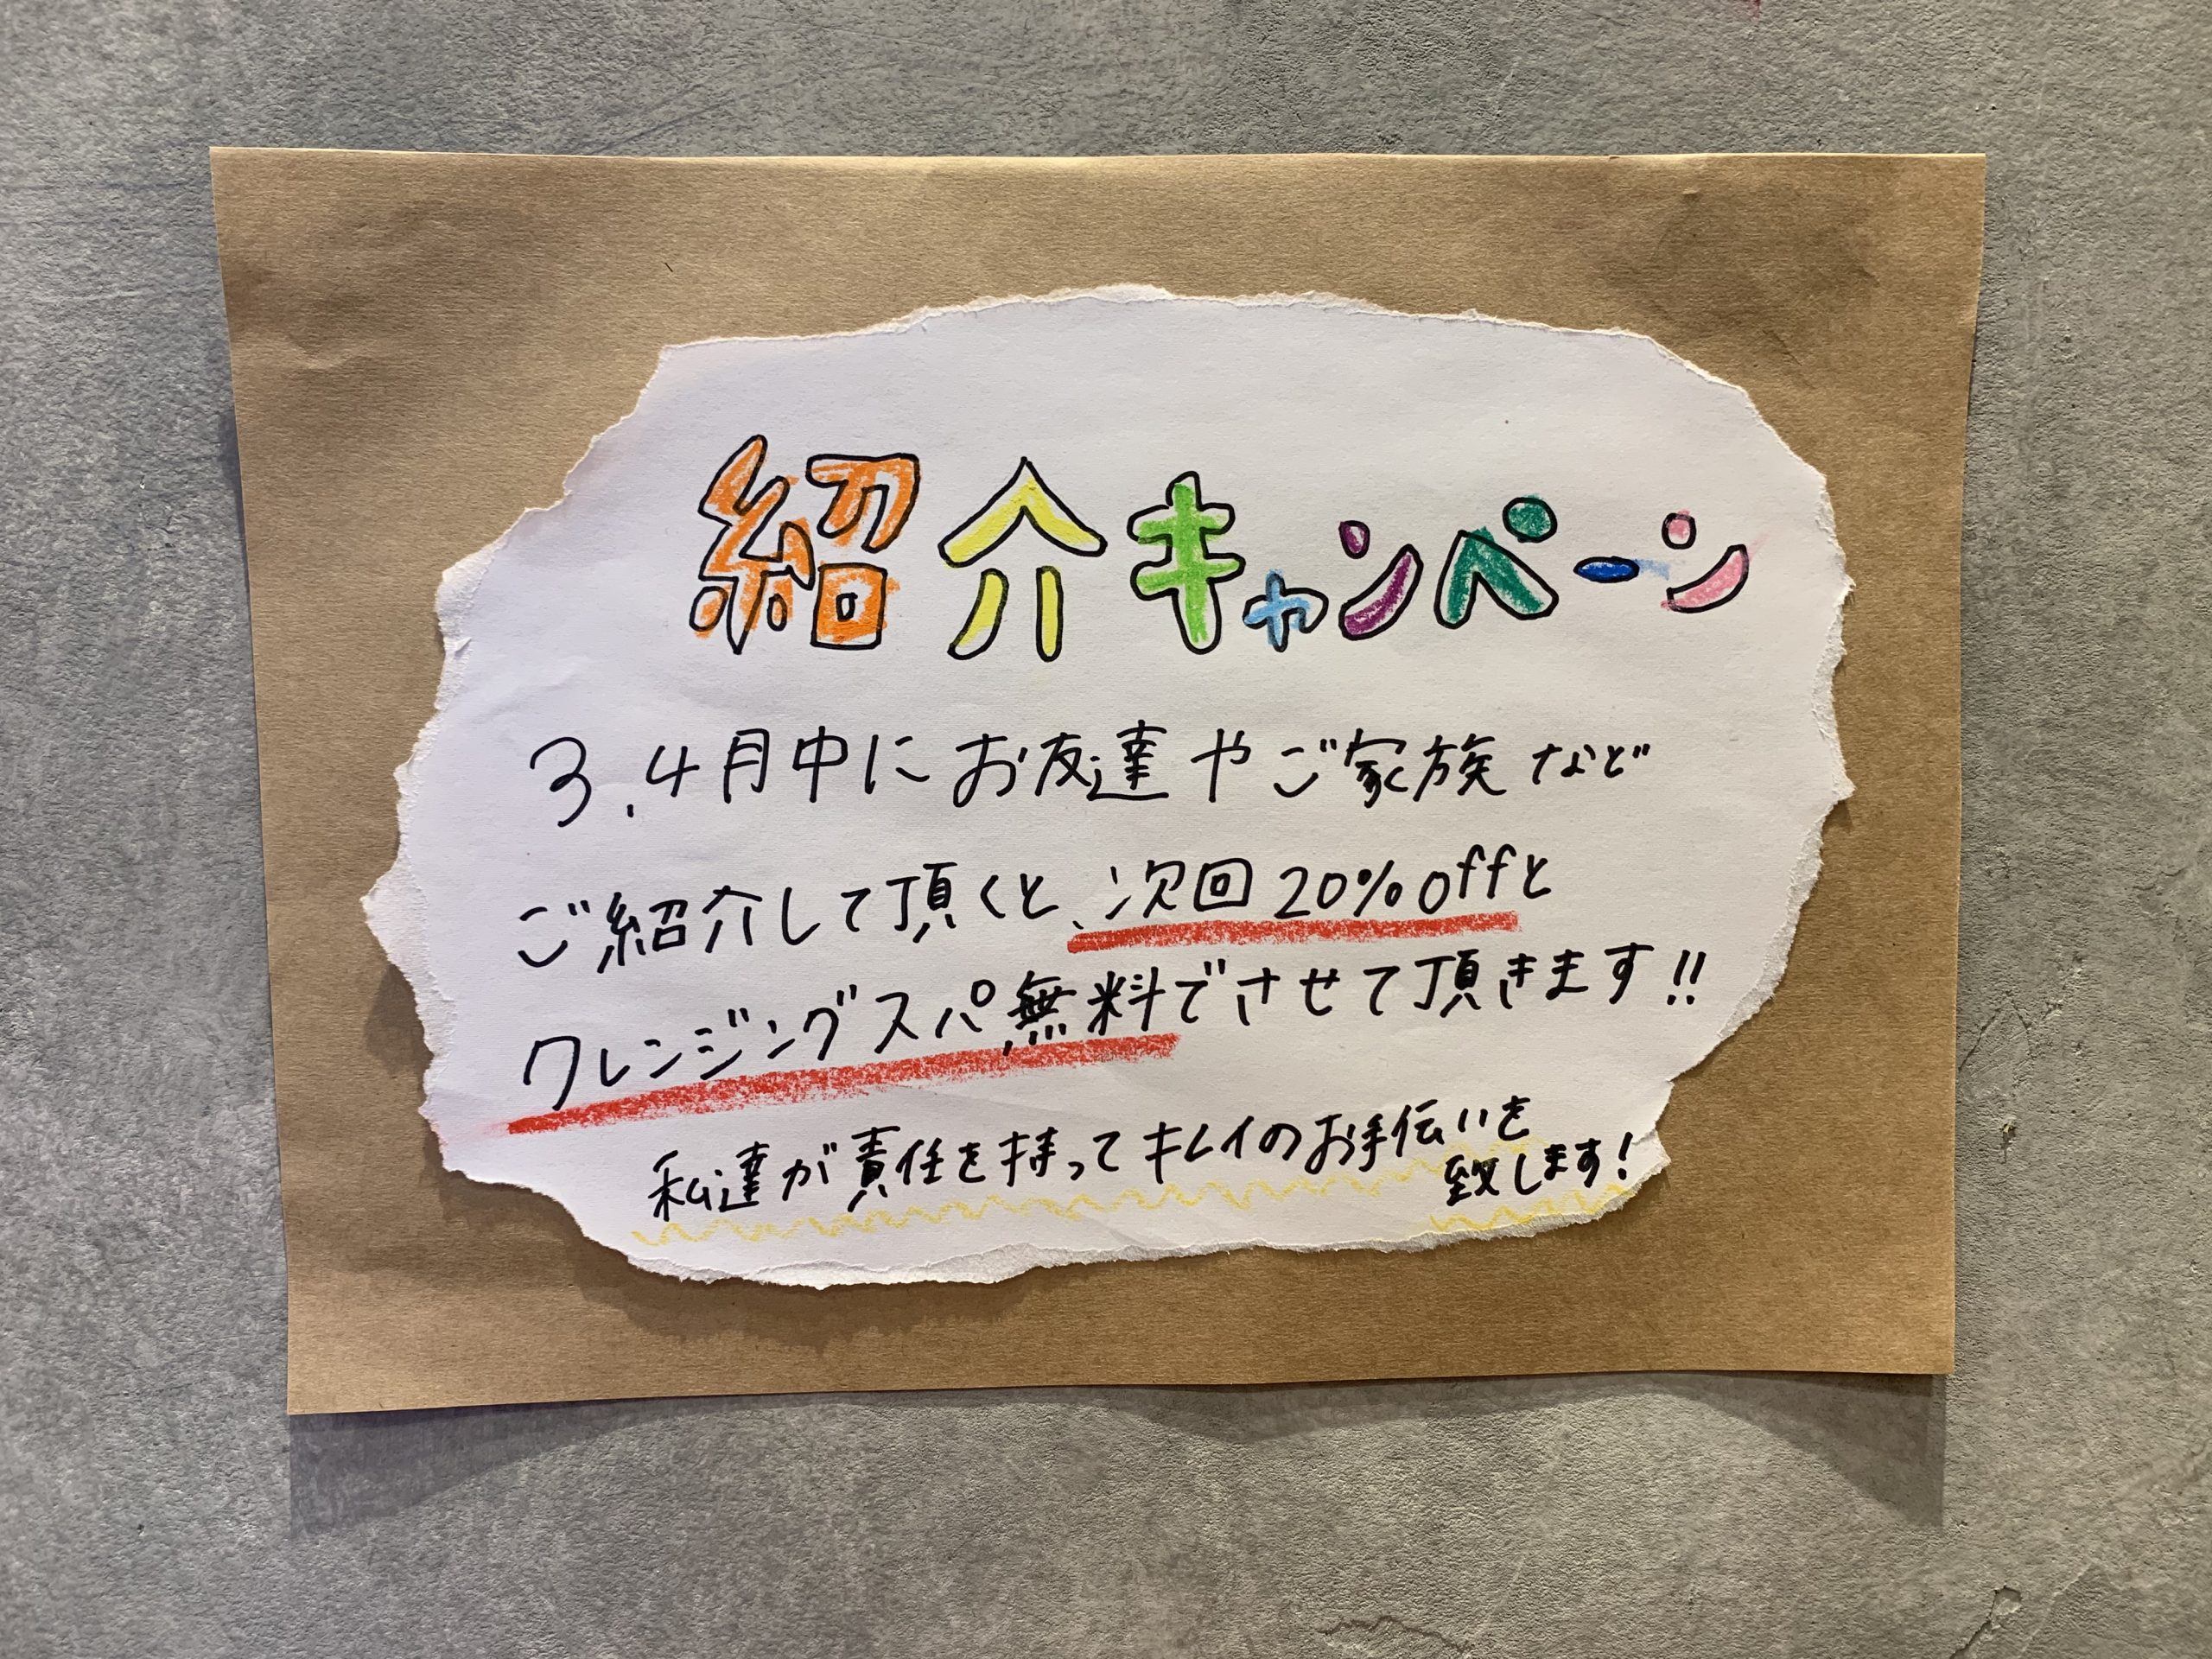 紹介キャンペーン
3.4月中にお友達やご家族など
ご紹介して頂くと、次回20%offと
クレンジングスパ無料でさせて頂きます!!
私達が責任を持ってキレイのお手伝いを
致します!